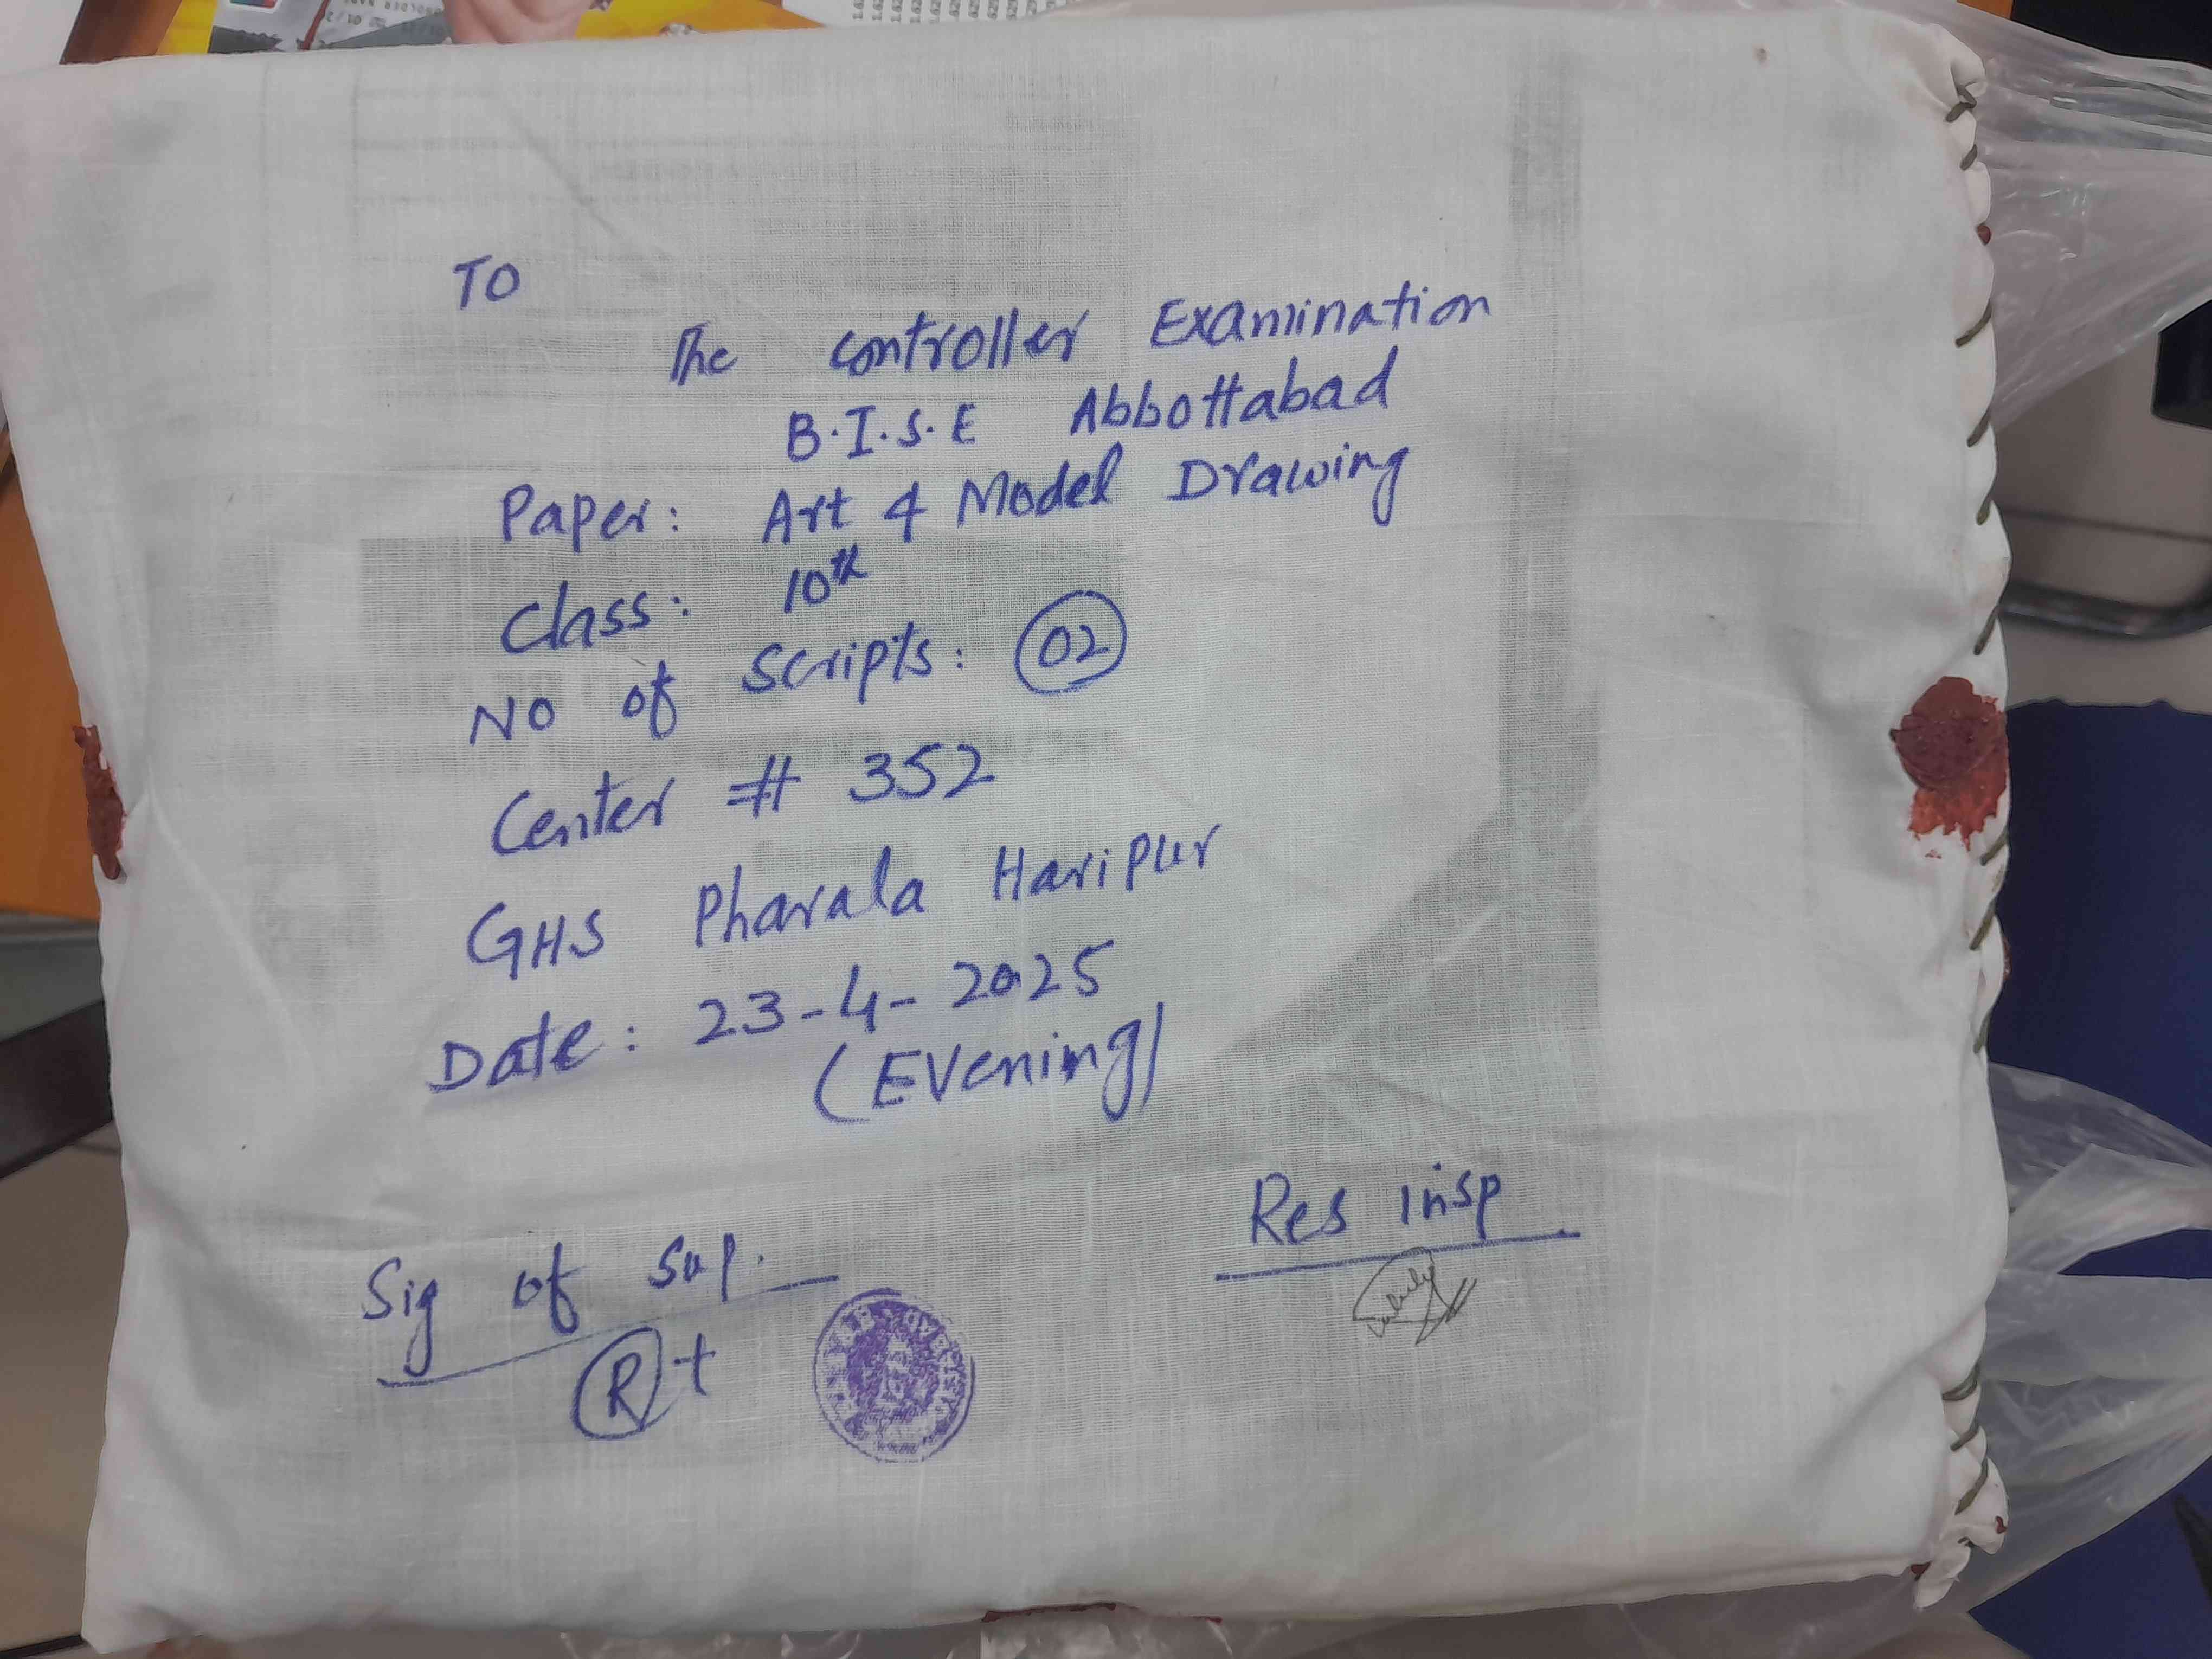 TO
The Controller Examination
B.I.S.E Abbottabad
Paper: Art & Model Drawing
Class: 10th
NO of Scripts: 02
Center # 352
GHS Pharala Haripur
Date: 23-4-2025
(Evening)
Sig of Sup.
R+
Res insp